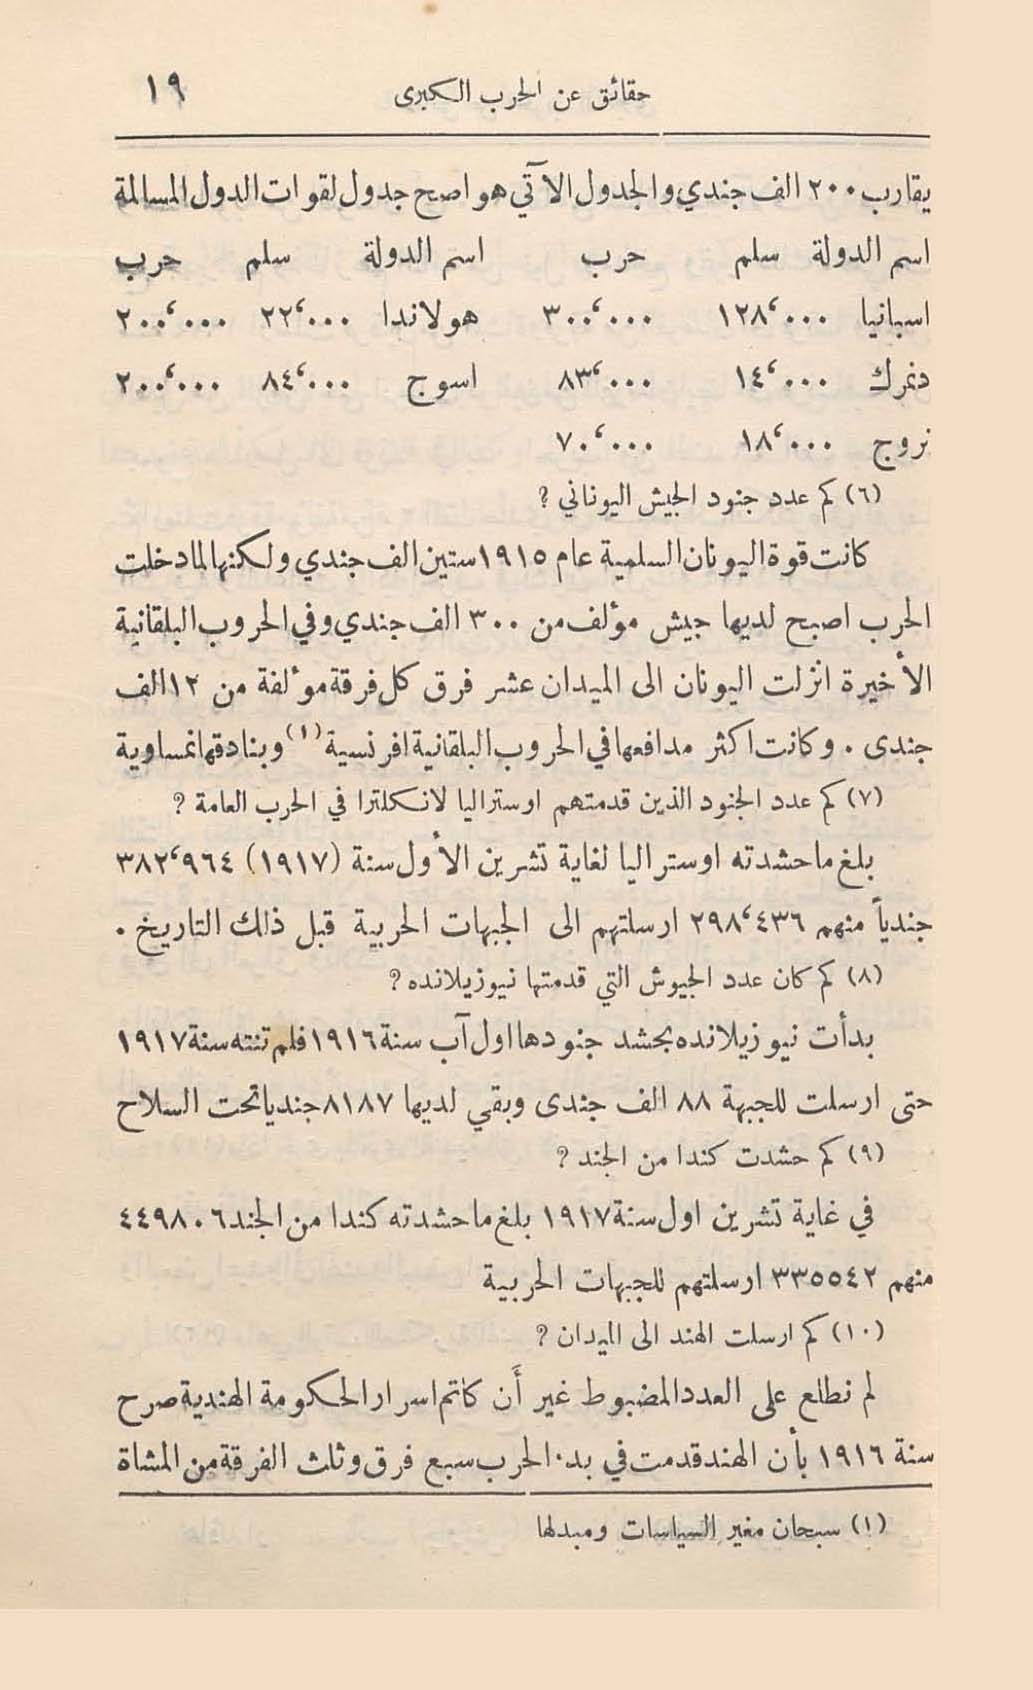 حقائق عن الحرب الكبرى ١٩
يقارب ٢٠٠ الف جندي والجدول الآتي هو اصح جدول لقوات الدول المسالمة
اسم الدولة سلم حرب اسم الدولة سلم حرب
اسبانيا ١٢٨٬٠٠٠ ٣٠٠٬٠٠٠ هولاندا ٢٢٬٠٠٠ ٢٠٠٬٠٠٠
دنمرك ١٤٬٠٠٠ ٨٣٬٠٠٠ اسوج ٨٤٬٠٠٠ ٢٠٠٬٠٠٠
نروج ١٨٬٠٠٠ ٧٠٬٠٠٠
(٦) كم عدد جنود الجيش اليوناني ؟
كانت قوة اليونان السلمية عام ١٩١٥ ستين الف جندي ولكنها لما دخلت
الحرب اصبح لديها جيش مؤلف من ٣٠٠ الف جندي وفي الحروب البلقانية
الأخيرة انزلت اليونان الى الميدان عشر فرق كل فرقة مؤلفة من ١٢ الف
جندى . وكانت اكثر مدافعها في الحروب البلقانية افرنسية (١) وبنادقها نمساوية
(٧) كم عدد الجنود الذين قدمتهم اوستراليا لانكلترا في الحرب العامة ؟
بلغ ما حشدته اوستراليا لغاية تشرين الأول سنة (١٩١٧) ٣٨٢٬٩٦٤
جندياً منهم ٢٩٨٬٤٣٦ ارسلتهم الى الجبهات الحربية قبل ذلك التاريخ .
(٨) كم كان عدد الجيوش التي قدمتها نيوزيلانده ؟
بدأت نيوزيلانده بحشد جنودها اول آب سنة ١٩١٦ فلم تنته سنة ١٩١٧
حتى ارسلت للجبهة ٨٨ الف جندى وبقي لديها ٨١٨٧ جنديا تحت السلاح
(٩) كم حشدت كندا من الجند ؟
في غاية تشرين اول سنة ١٩١٧ بلغ ما حشدته كندا من الجند ٤٤٩٨٠٦
منهم ٣٣٥٥٤٢ ارسلتهم للجبهات الحربية
(١٠) كم ارسلت الهند الى الميدان ؟
لم نطلع على العدد المضبوط غير أن كاتم اسرار الحكومة الهندية صرح
سنة ١٩١٦ بأن الهند قدمت في بدء الحرب سبع فرق وثلث الفرقة من المشاة
(١) سبحان مغير السياسات ومبدلها